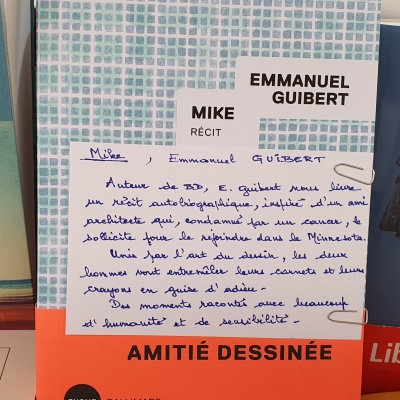 EMMANUEL
GUIBERT
MIKE
RÉCIT
Mike, Emmanuel GUIBERT
Auteur de BD, E. Guibert nous livre
un récit autobiographique, inspiré d'un ami
architecte qui, condamné par un cancer, le
sollicite pour le rejoindre dans le Minnesota.
Unis par l'art du dessin, les deux
hommes vont entremêler leurs carnets et leurs
crayons en guise d'adieu.
Des moments racontés avec beaucoup
d'humanité et de sensibilité.
AMITIÉ DESSINÉE
Lib